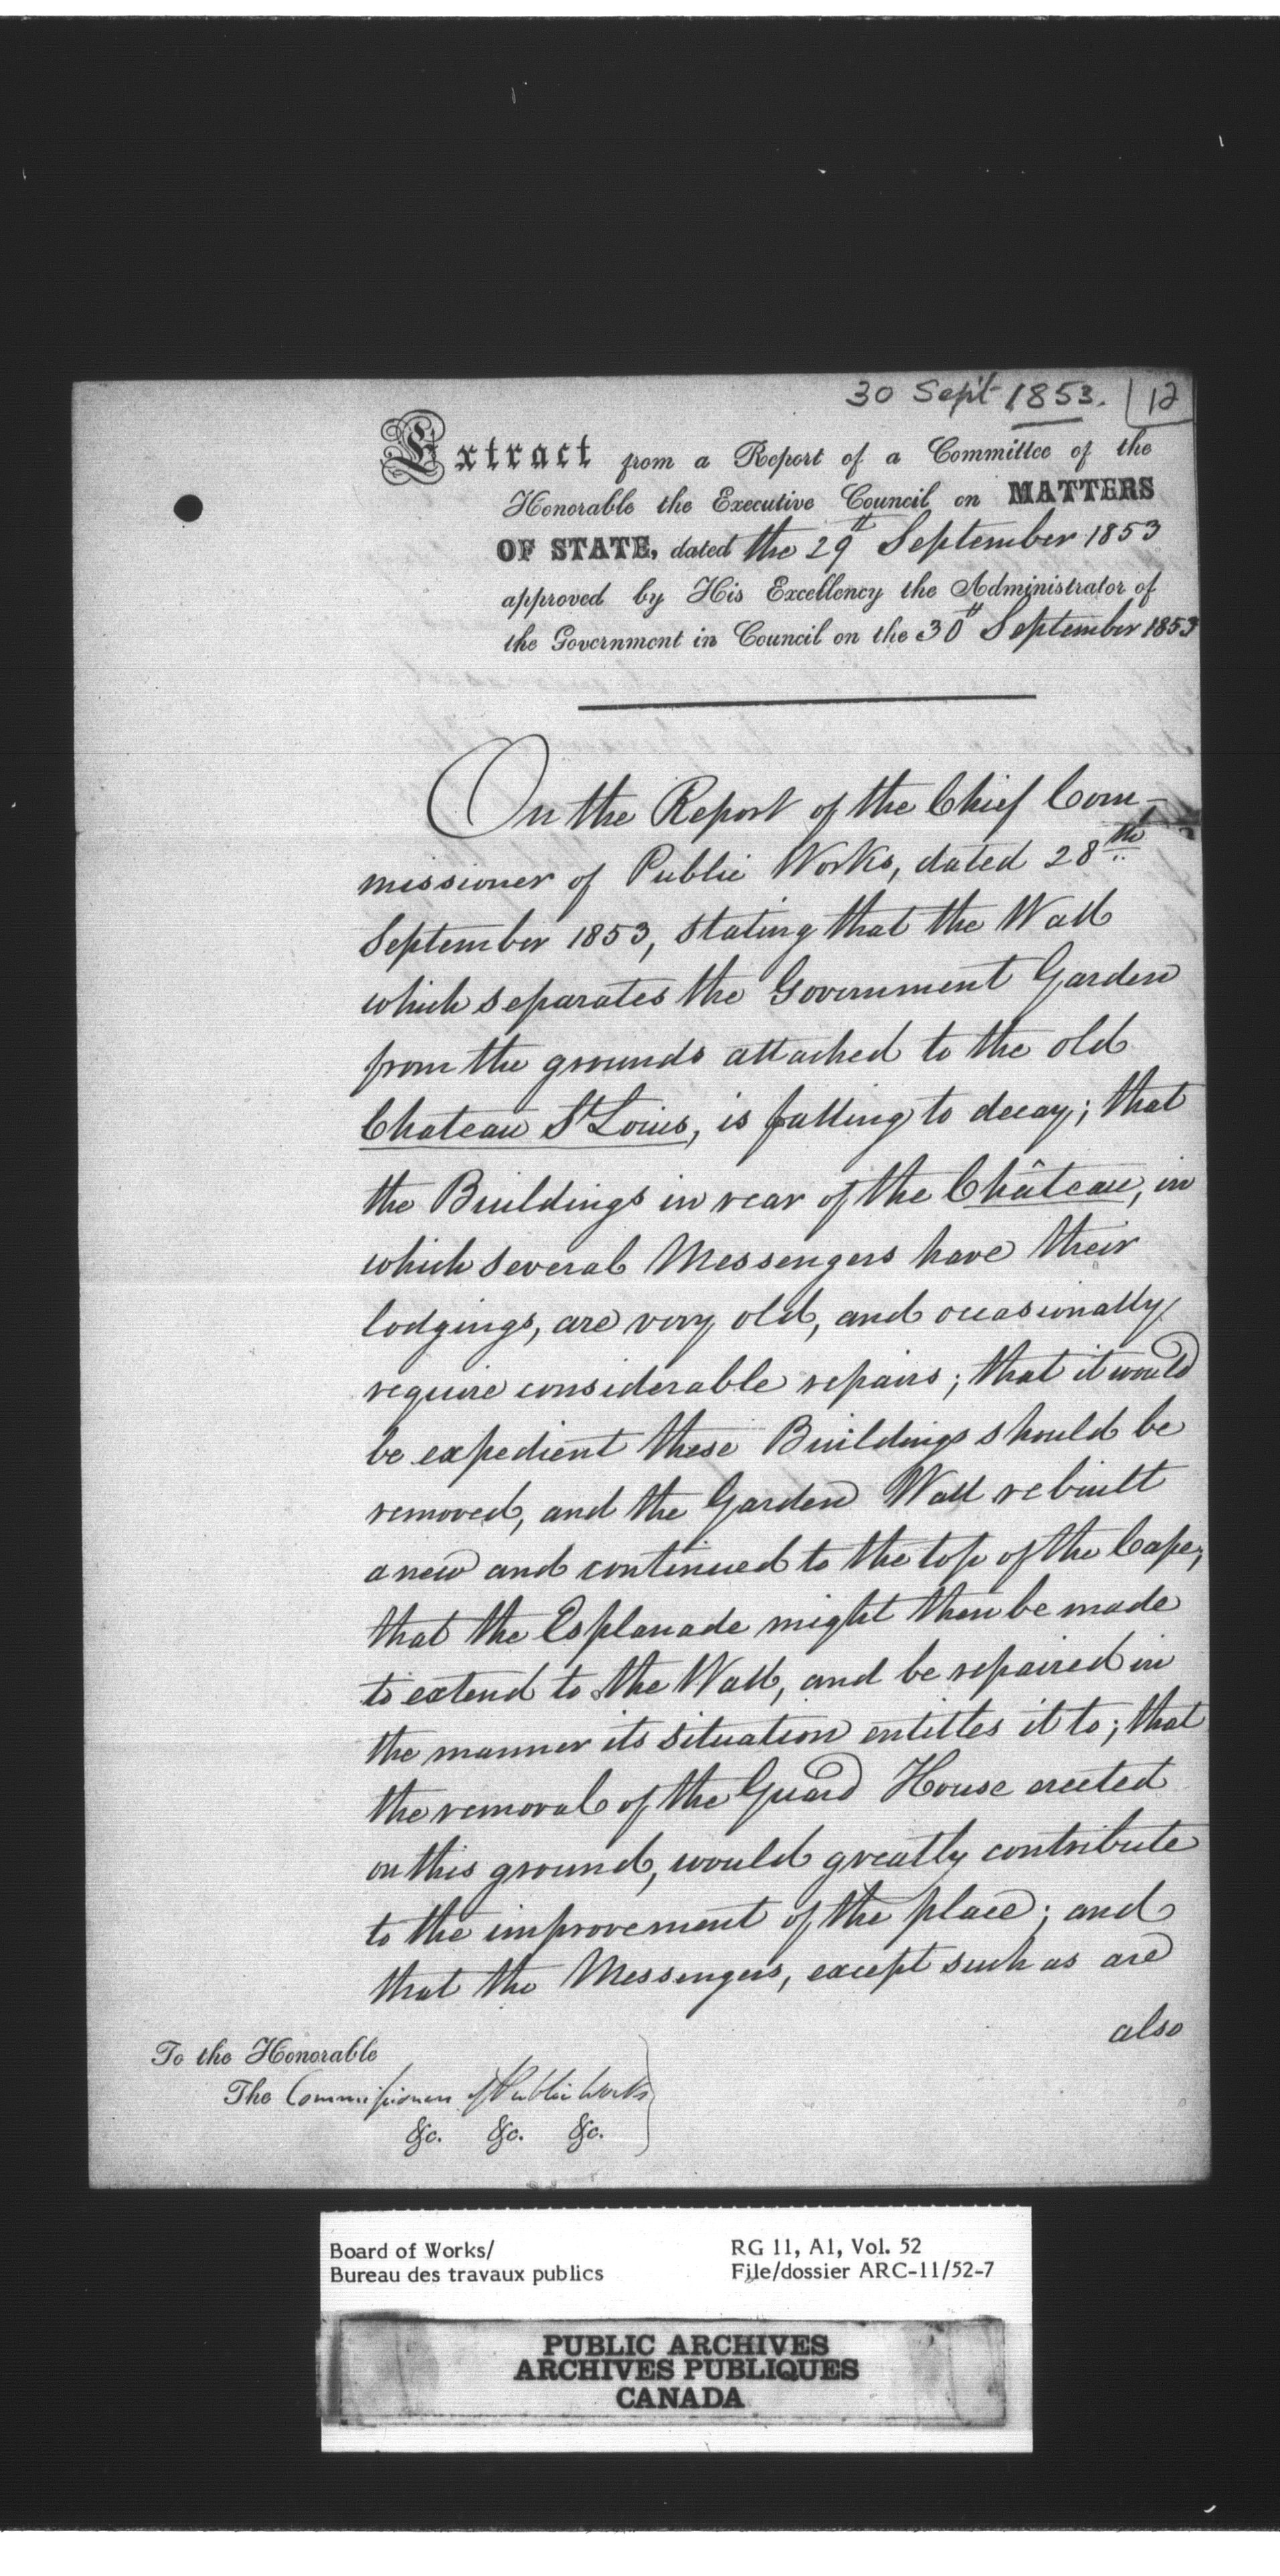 30 Sept 1853. 12
Extract from a Report of a Committee of the
Honorable the Executive Council on MATTERS
OF STATE, dated the 29th September 1853
approved by His Excellency the Administrator of
the Government in Council on the 30th September 1853
On the Report of the Chief Com-
missioner of Public Works, dated 28th
September 1853, stating that the Wall
which separates the Government Garden
from the grounds attached to the old
Chateau St Louis, is falling to decay; that
the Buildings in rear of the Château, in
which several Messengers have their
lodgings, are very old, and occasionally
require considerable repairs; that it would
be expedient these Buildings should be
removed, and the Garden Wall rebuilt
anew and continued to the top of the Cape;
that the Esplanade might then be made
to extend to the Wall, and be repaired in
the manner its situation entitles it to; that
the removal of the Guard House erected
on this ground, would greatly contribute
to the improvement of the place; and
that the Messengers, except such as are
also
To the Honorable
The Commissioners of Public Works
&c. &c. &c.
Board of Works/
Bureau des travaux publics
RG 11, A1, Vol. 52
File/dossier ARC-11/52-7
PUBLIC ARCHIVES
ARCHIVES PUBLIQUES
CANADA